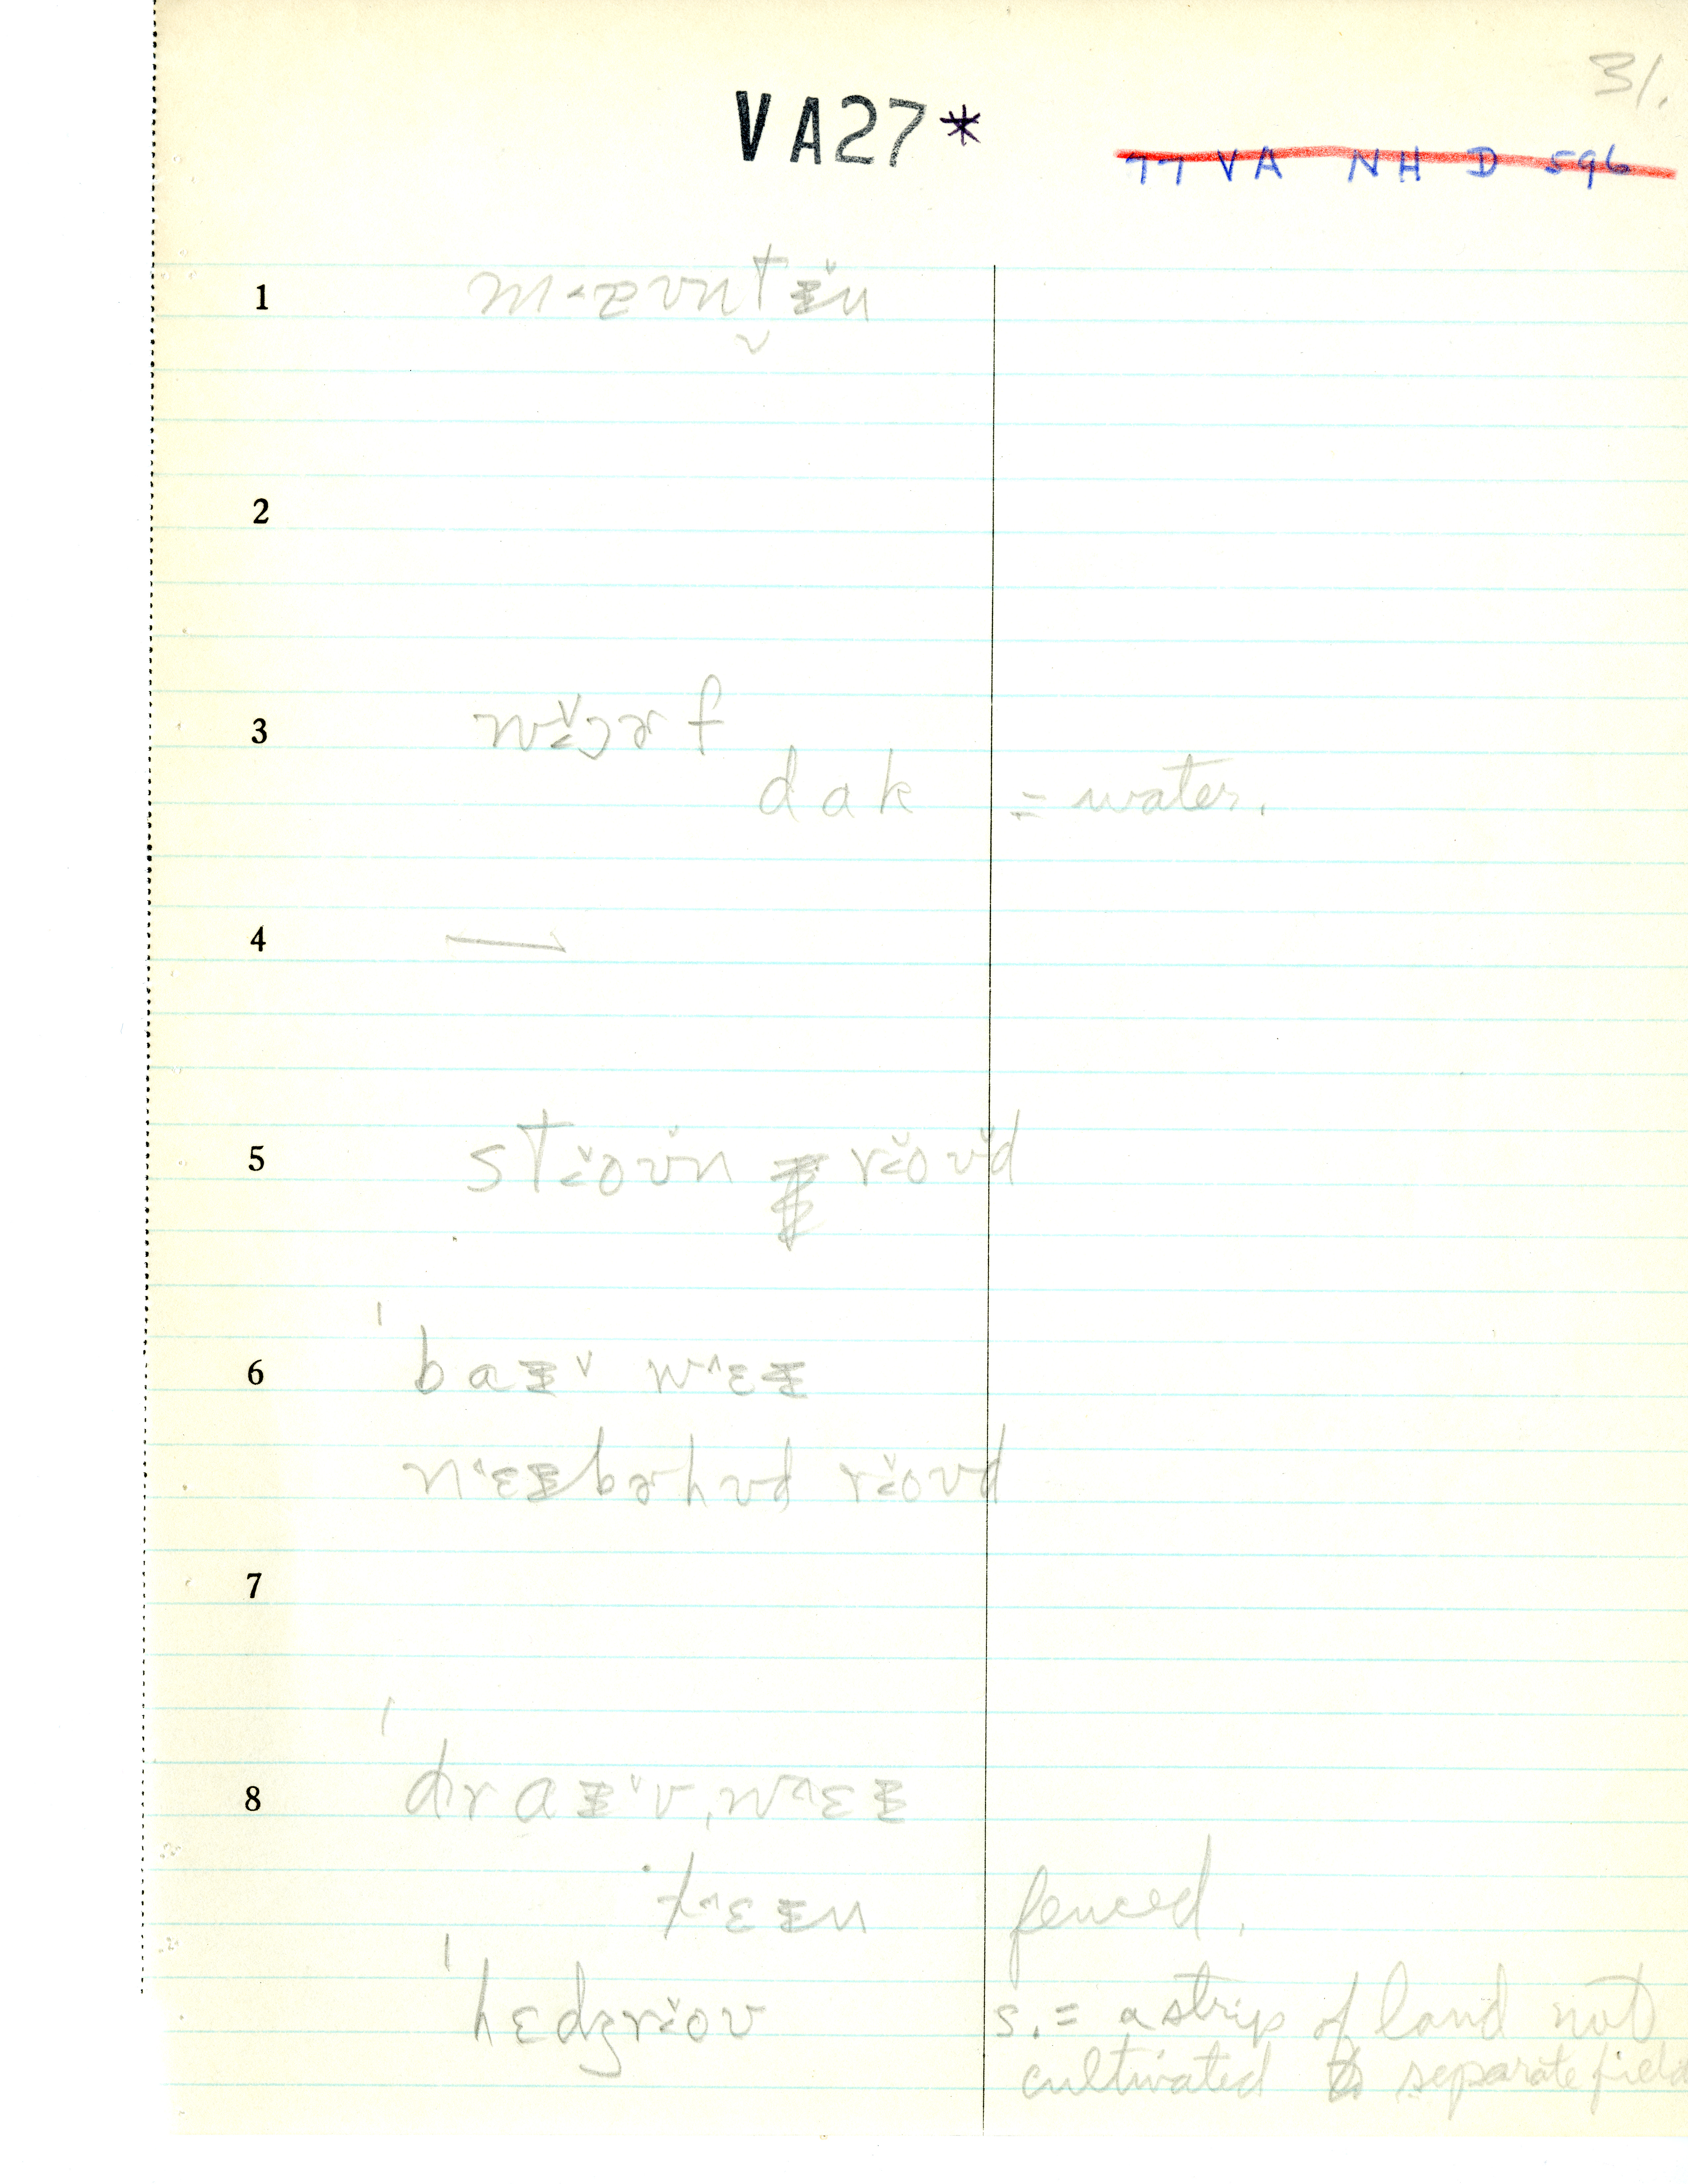 31.
VA27*
TT VA NH D 596
1 m˂ɒʊnt̬ᵻ̆n
2
3 wɔ̆˂ɚf
dak = water.
4 —
5 st˂ŏʊ̆n r˂ŏʊ̆d
6 ˈbaᵻ˅ w˄ɛᵻ
n˄ɛᵻbɚhʊd r˂ŏʊd
7
8 ˈdraᵻ˅vˌw˄ɛᵻ
l˄ɛᵻn fenced.
ˈhɛdʒr˂ŏʊ s. = a strip of land not
cultivated to separate field